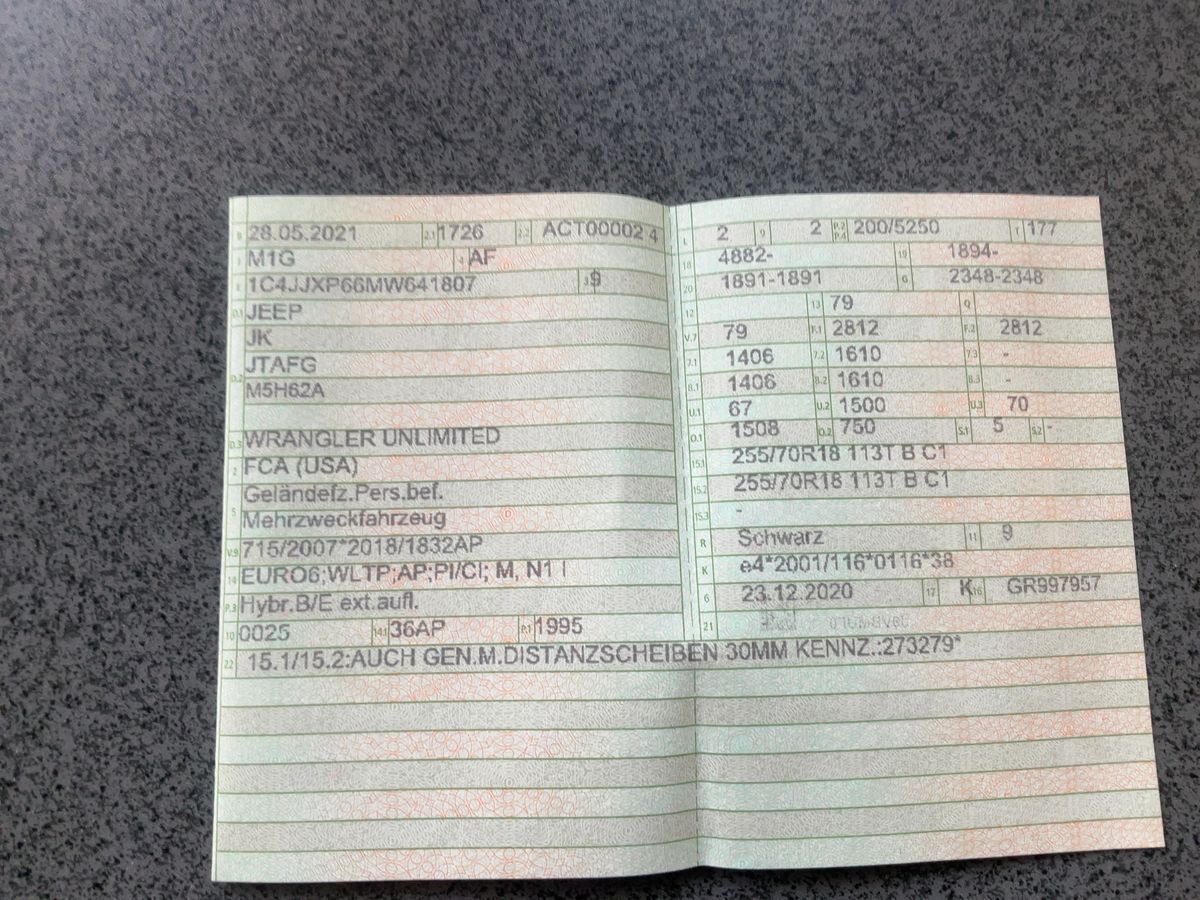 B 28.05.2021 2.1 1726 2.2 ACT00002 4
J M1G 4 AF
E 1C4JJXP66MW641807 3 9
D.1 JEEP
JK
D.2 JTAFG
M5H62A
D.3 WRANGLER UNLIMITED
2 FCA (USA)
5 Geländefz.Pers.bef.
Mehrzweckfahrzeug
V.9 715/2007*2018/1832AP
14 EURO6;WLTP;AP;PI/CI; M, N1 I
P.3 Hybr.B/E ext.aufl.
10 0025 14.1 36AP P.1 1995
L 2 9 2 P.2 P.4 200/5250 T 177
18 4882- 19 1894-
20 1891-1891 G 2348-2348
12 13 79 Q
V.7 79 F.1 2812 F.2 2812
7.1 1406 7.2 1610 7.3 -
8.1 1406 8.2 1610 8.3 -
U.1 67 U.2 1500 U.3 70
O.1 1508 O.2 750 S.1 5 S.2 -
15.1 255/70R18 113T B C1
15.2 255/70R18 113T B C1
15.3 -
R Schwarz 11 9
K e4*2001/116*0116*38
6 23.12.2020 17 K 16 GR997957
21
22 15.1/15.2:AUCH GEN.M.DISTANZSCHEIBEN 30MM KENNZ.:273279*